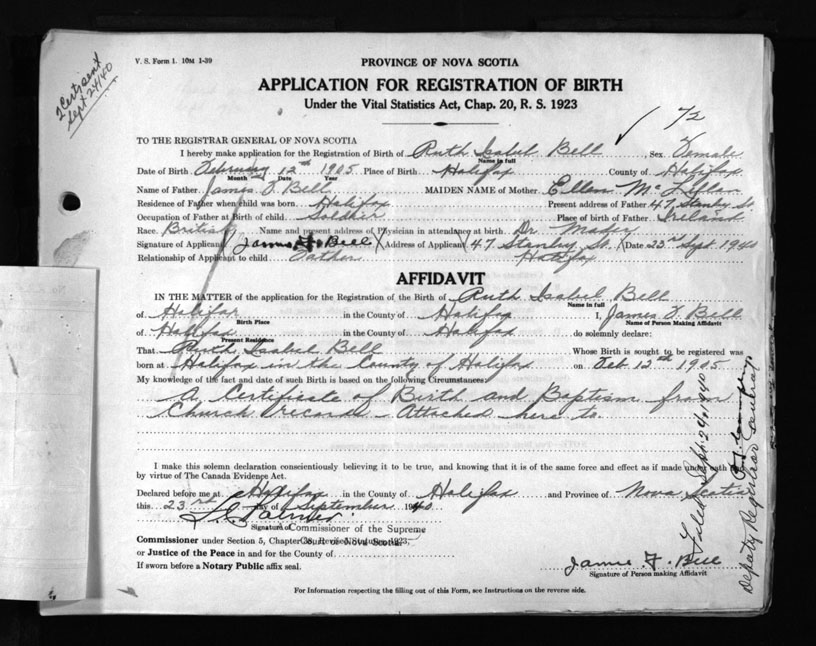 2 Certs sent
Sept 24/40
V. S. Form 1. 10M 1-39
PROVINCE OF NOVA SCOTIA
APPLICATION FOR REGISTRATION OF BIRTH
Under the Vital Statistics Act, Chap. 20, R. S. 1923
72
TO THE REGISTRAR GENERAL OF NOVA SCOTIA
I hereby make application for the Registration of Birth of Ruth Isabel Bell Sex Female
Name in full
Date of Birth February 12th 1905 Place of Birth Halifax County of Halifax
Month Date Year
Name of Father James F Bell MAIDEN NAME of Mother Ellen
Residence of Father when child was born Halifax Present address of Father 47 Stanley St.
Occupation of Father at Birth of child Soldier Place of birth of Father Ireland
Race British Name and present address of Physician in attendance at birth Dr.
Signature of Applicant James F Bell Address of Applicant 47 Stanley St. Date 23rd Sept. 1940
Relationship of Applicant to child Father Halifax
AFFIDAVIT
IN THE MATTER of the application for the Registration of the Birth of Ruth Isabel Bell
Name in full
of Halifax in the County of Halifax I, James F Bell
Birth Place Name of Person Making Affidavit
of Halifax in the County of Halifax do solemnly declare:
Present Residence
That Ruth Isabel Bell Whose Birth is sought to be registered was
born at Halifax in the County of Halifax on Feb. 12th 1905.
My knowledge of the fact and date of such Birth is based on the following Circumstances:
A Certificate of Birth and Baptism from
Church records - Attached here to.
I make this solemn declaration conscientiously believing it to be true, and knowing that it is of the same force and effect as if made under oath
by virtue of The Canada Evidence Act.
Declared before me at Halifax in the County of Halifax and Province of Nova Scotia
this 23rd day of September 1940
Signature of Commissioner of the Supreme
Court of Nova Scotia
Commissioner under Section 5, Chapter 38, Revised Statutes 1923,
or Justice of the Peace in and for the County of
If sworn before a Notary Public affix seal.
James F. Bell
Signature of Person making Affidavit
For Information respecting the filling out of this Form, see Instructions on the reverse side.
Filed Sept. 24, 1940
Deputy Registrar General